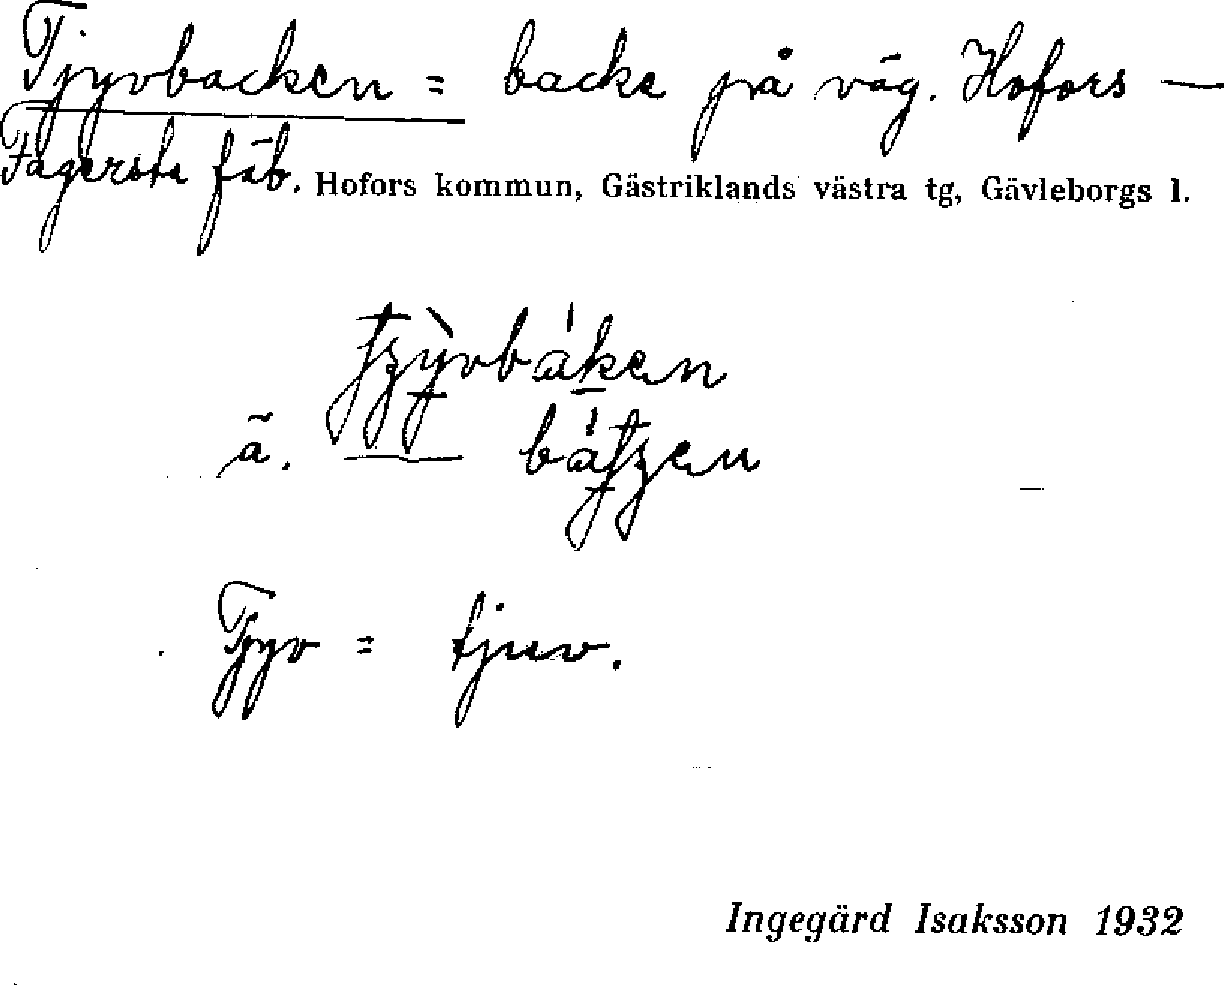 Tjyvbacken = backe på väg. Hofors —
Fagersta fäb. Hofors kommun, Gästriklands västra tg, Gävleborgs l.
ã. —
Tjyv = tjuv.
Ingegärd Isaksson 1932